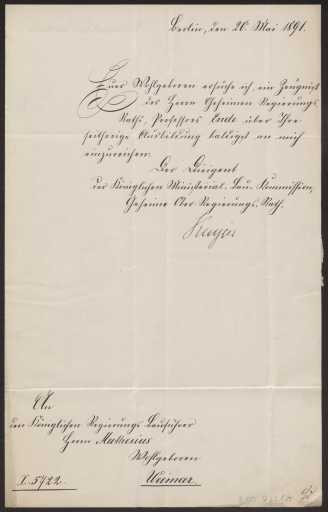 Berlin, den 20. Mai 1891.
Euer Wohlgeboren ersuche ich, ein Zeugniß
des Herrn Geheimen Regierungs-
Raths, Professors Ende über Ihre
seitherige Ausbildung baldigst an mich
einzureichen.
Der Dirigent
der Königlichen Ministerial-Bau-Kommission,
Geheime Ober-Regierungs-Rath.
Keyser
An
den Königlichen Regierungs-Bauführer
Herrn Muthesius
Wohlgeboren
I. 5922. Weimar.